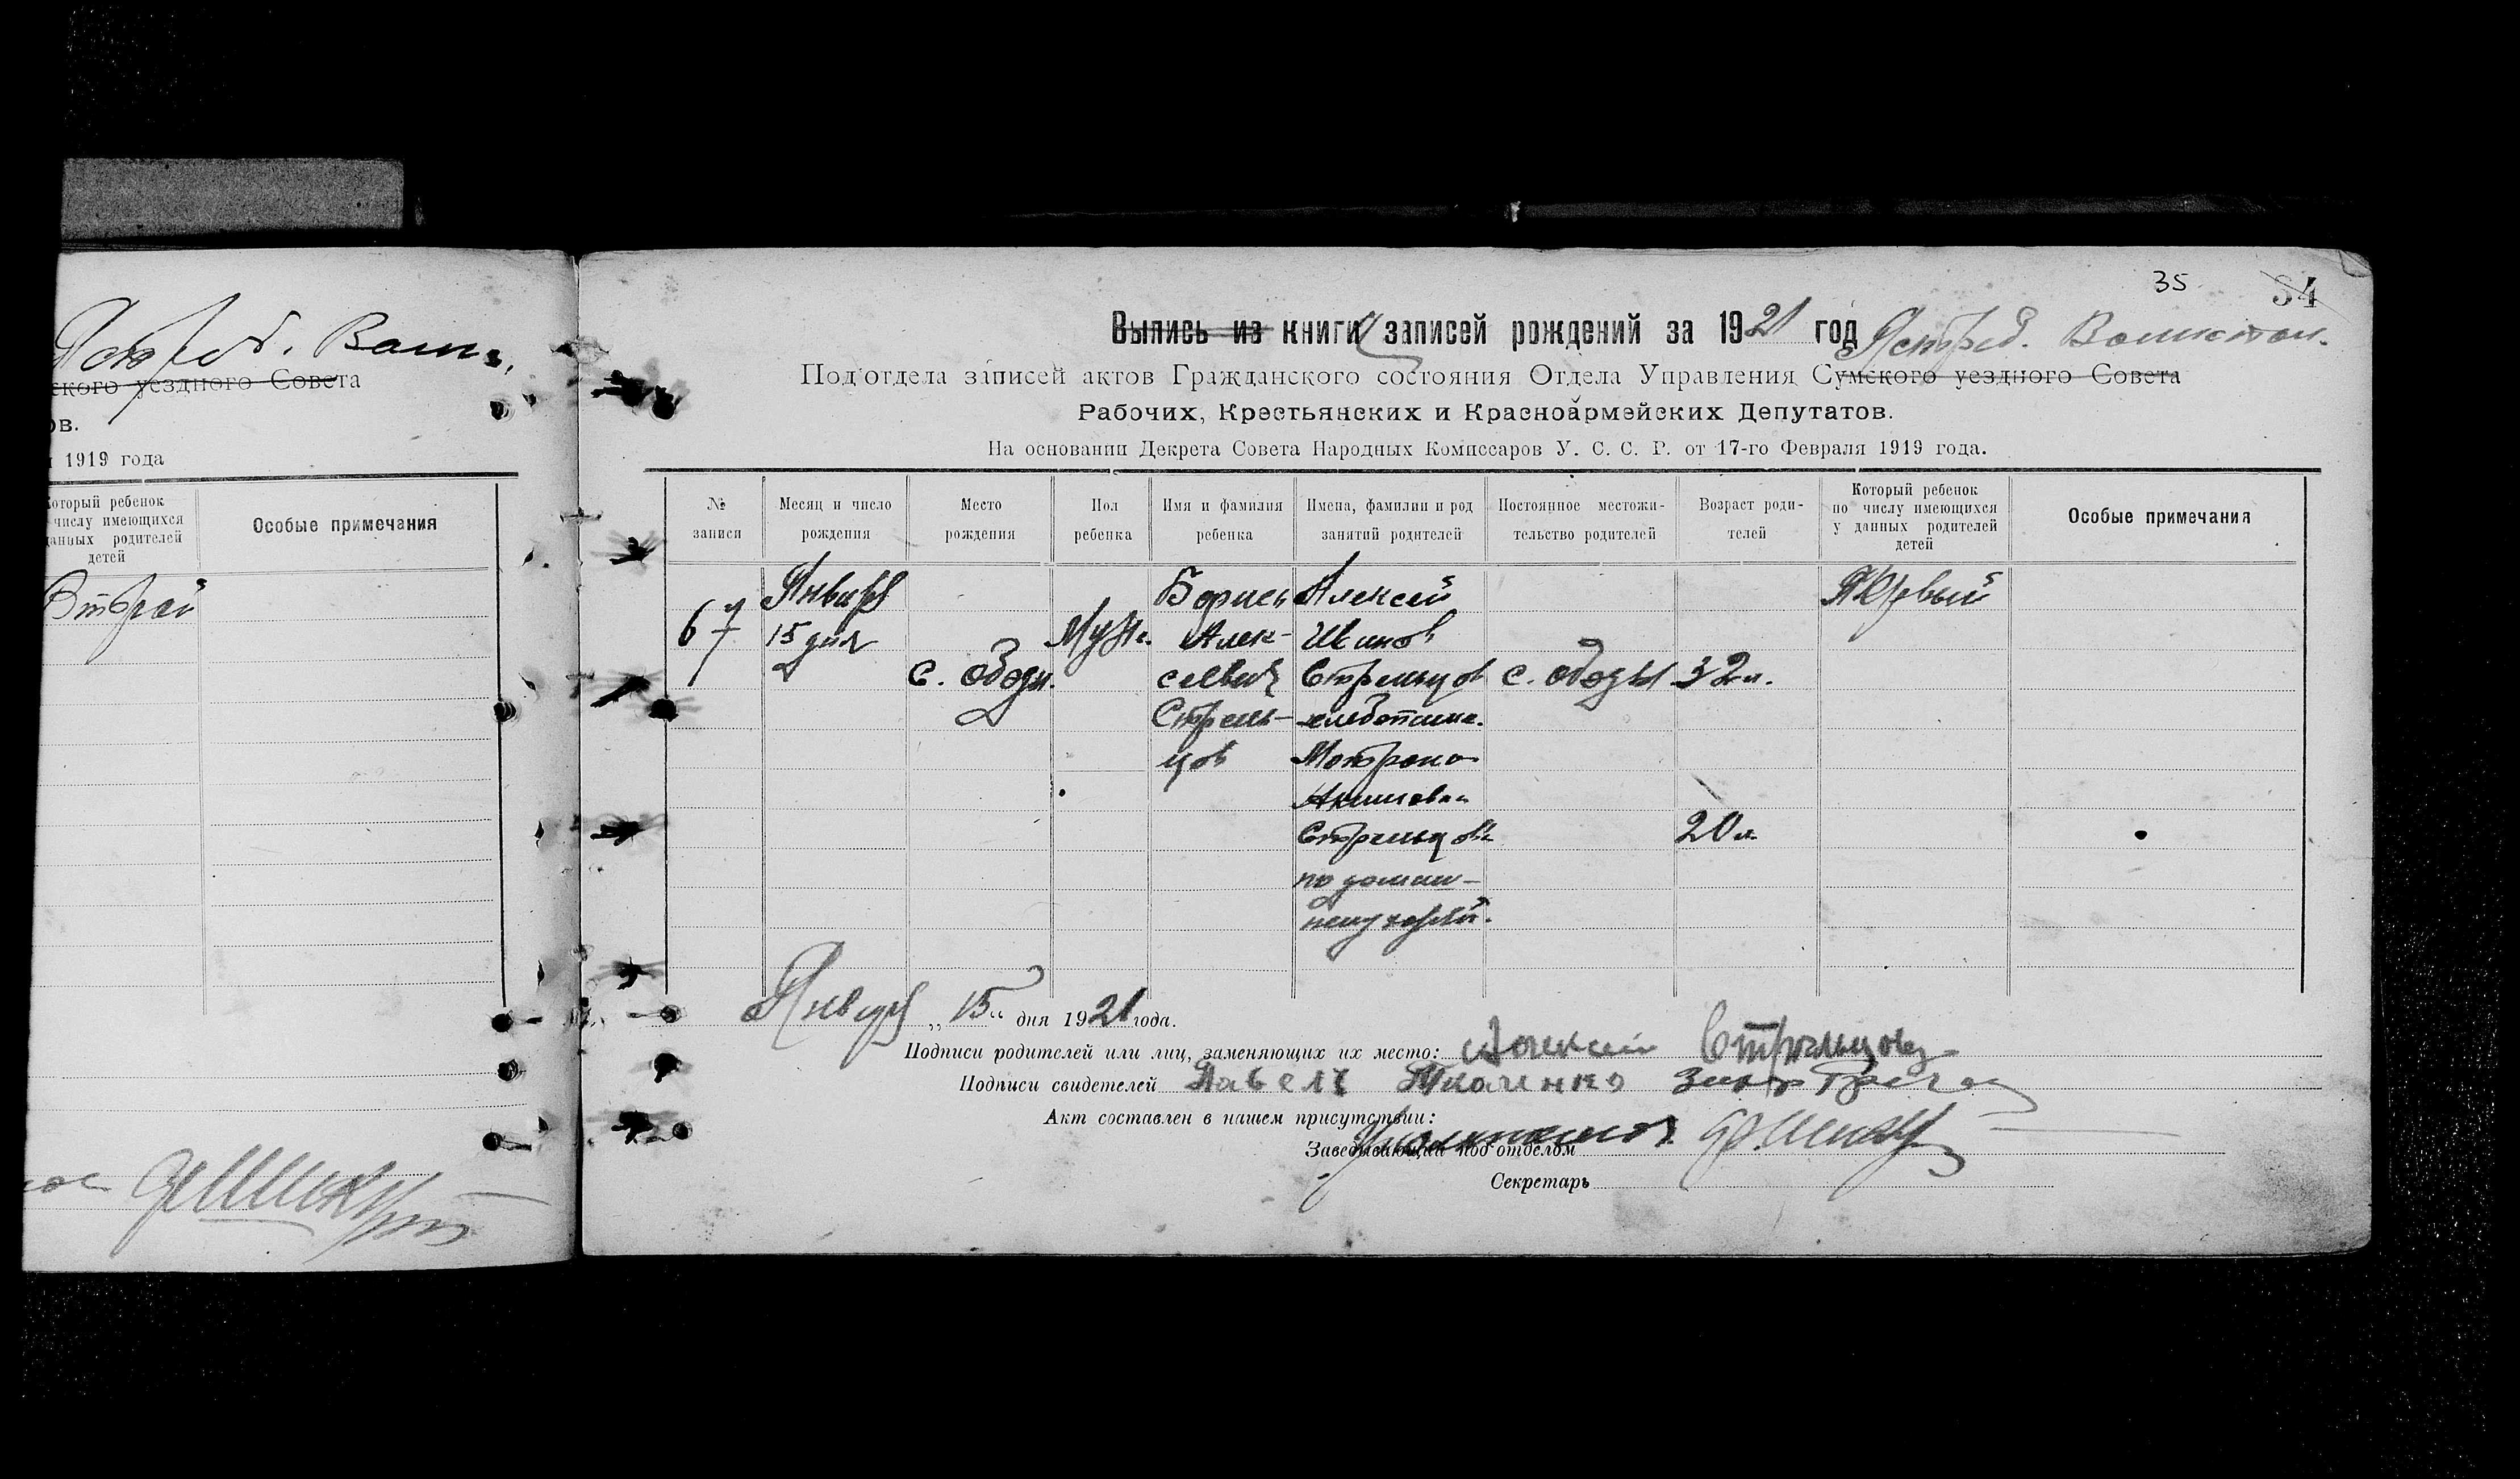 Ястреб. Волис.
ского уездного Совета
ов.
1919 года
Который ребенок
числу имеющихся
данных родителей
детей
Особые примечания
Второй
35
34
Выпись из книги записей рождений за 1921 год
Ястреб. Волисполк.
Под'отдела записей актов Гражданского состояния Отдела Управления Сумского уездного Совета
Рабочих, Крестьянских и Красноармейских Депутатов.
На основании Декрета Совета Народных Комиссаров У. С. С. Р. от 17-го Февраля 1919 года.
№ записи
Месяц и число рождения
Место рождения
Пол ребенка
Имя и фамилия ребенка
Имена, фамилии и род занятий родителей
Постоянное местожительство родителей
Возраст родителей
Который ребенок по числу имеющихся у данных родителей детей
Особые примечания
67
Января
15 дня
с. Ободы.
Муж.
Борись
Алек-
сеевич
Стрель-
цов
Алексей
Иванов
Стрельцов
хлебопаш.
Мотрона
Акимовна
Стрельцова
по домаш-
нему хозяй.
с. Ободы
32 л.
20 л.
Первый
Января „15“ дня 1921 года.
Подписи родителей или лиц, заменяющих их место: Алексей Стрельцов
Подписи свидетелей Павел Ткаченко
Акт составлен в нашем присутствии:
Заведывающий под'отделом
Секретарь